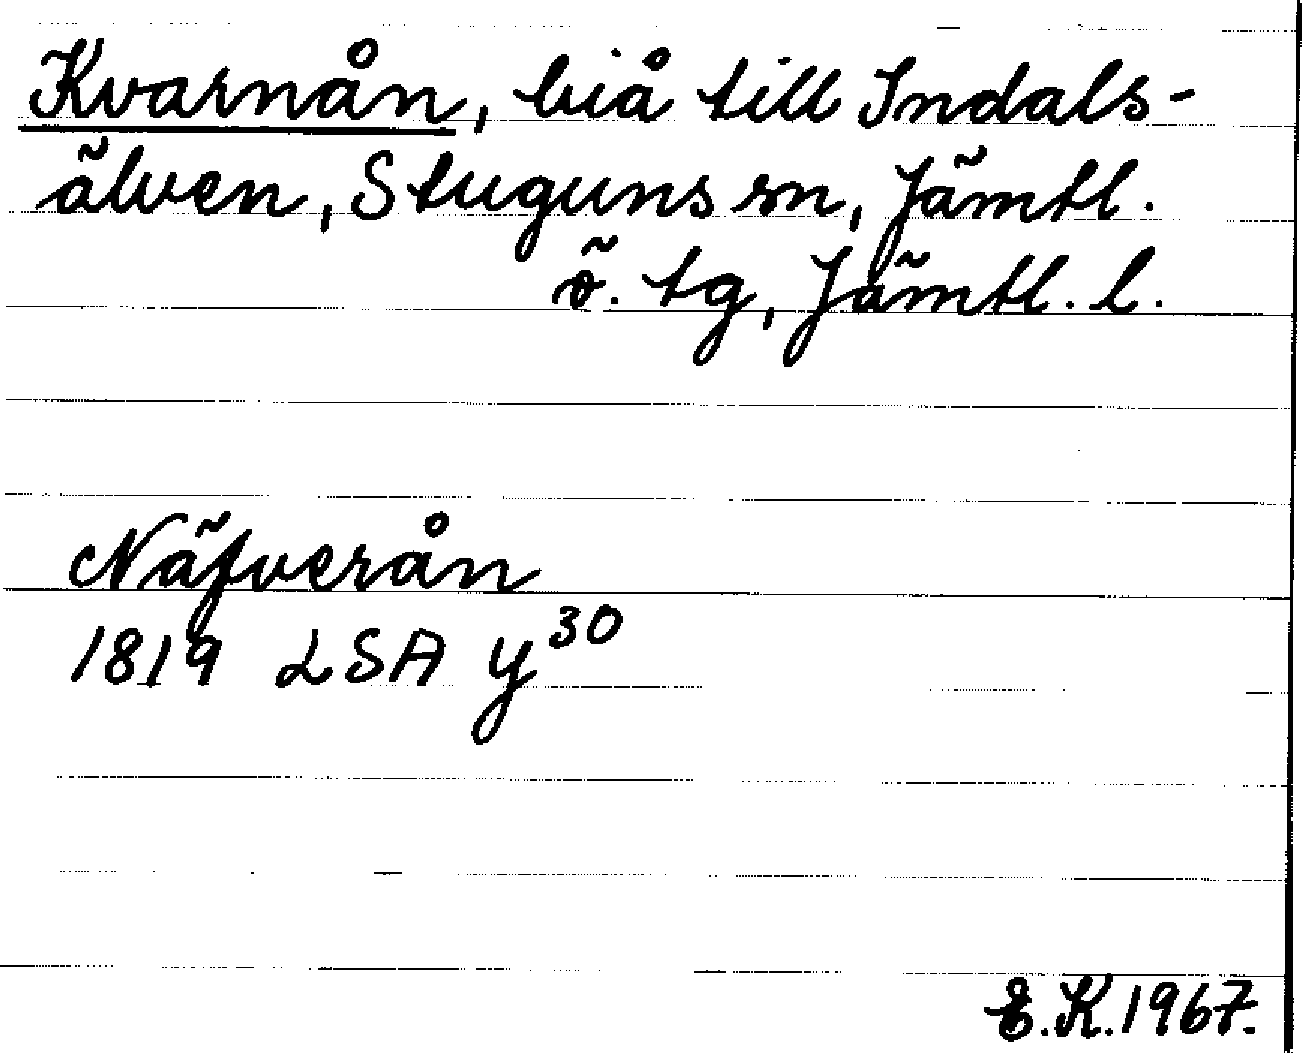 Kvarnån, biå till Indals-
älven, Stuguns sn, Jämtl.
ö. tg, Jämtl. l.
Näfverån
1819 LSA y³⁰
E.K. 1967.